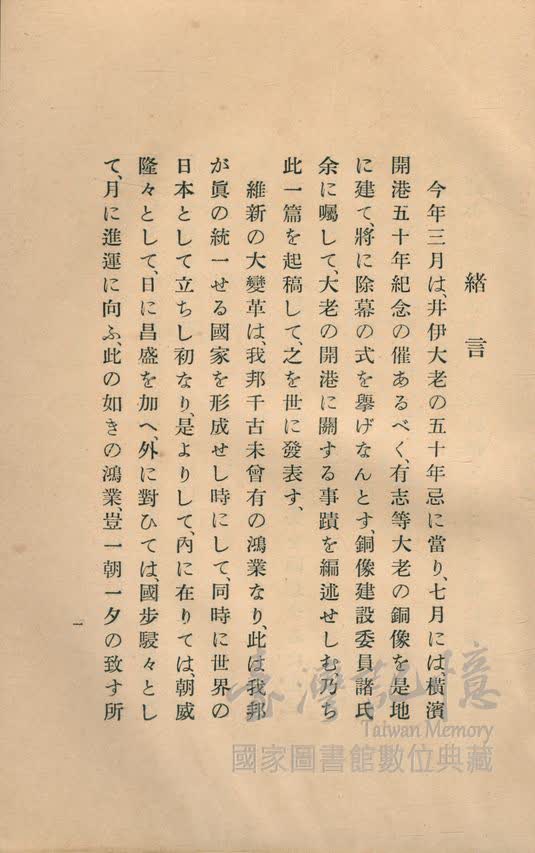 緒言
今年三月は、井伊大老の五十年忌に當り、七月には、橫濱
開港五十年紀念の催あるべく、有志等大老の銅像を是地
に建て、將に除幕の式を擧げなんとす、銅像建設委員諸氏
余に囑して、大老の開港に關する事蹟を編述せしむ、乃ち
此一篇を起稿して、之を世に發表す、
維新の大變革は、我邦千古未曾有の鴻業なり、此は我邦
が眞の統一せる國家を形成せし時にして、同時に世界の
日本として立ちし初なり、是よりして、內に在りては、朝威
隆々として、日に昌盛を加へ、外に對ひては、國步駸々とし
て、月に進運に向ふ、此の如きの鴻業、豈一朝一夕の致す所
一
臺灣記憶
Taiwan Memory
國家圖書館數位典藏